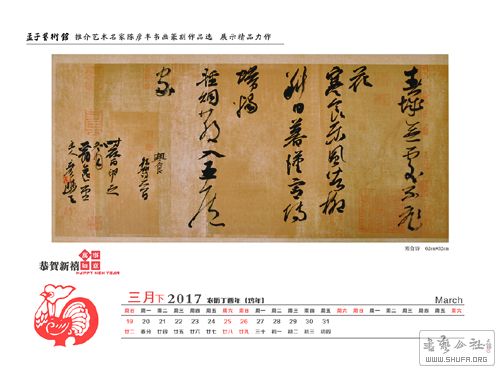 孟子藝術館 推介艺术名家陈彦丰书画篆刻作品选 展示精品力作
春城無處不飛
花
寒食東風御柳
斜日暮漢宮傳
蠟燭
輕煙散入五侯
家
寒食诗 62cmX32cm
恭賀新禧
萬事如意
HAPPY NEW YEAR
三月下 2017 农历丁酉年【鸡年】 March
周日 周一 周二 周三 周四 周五 周六 周日 周一 周二 周三 周四 周五 周六 周日 周一 周二 周三 周四 周五 周六
19 20 21 22 23 24 25 26 27 28 29 30 31
廿二 春分 廿四 廿五 廿六 廿七 廿八 廿九 三十 初一 初二 初三 初四
書藝公社
WWW.SHUFA.ORG